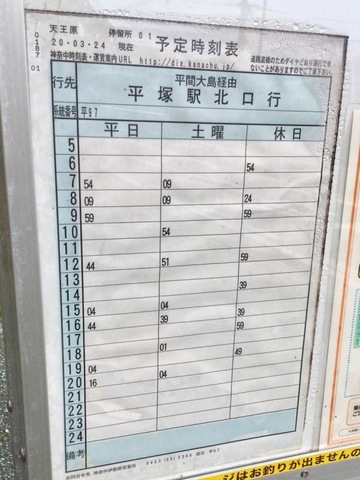 0187 01
天王原 停留所 01
20-03-24 現在
予定時刻表
神奈中時刻表・運営案内URL http://dia.kanachu.jp/
道路混雑のためダイヤどおり運行でき
ないことがありますのでご了承下さい
行先 平間大島経由
平塚駅北口行
系統番号 平97
平日 土曜 休日
5
6 54
7 54 09
8 09 09 24
9 59 59
10 54
11
12 44 51 59
13
14 39
15 04 04
16 44 39 59
17
18 01 49
19 04
20 16 04
21
22
23
24
備考
ジはお釣りが出ませんの